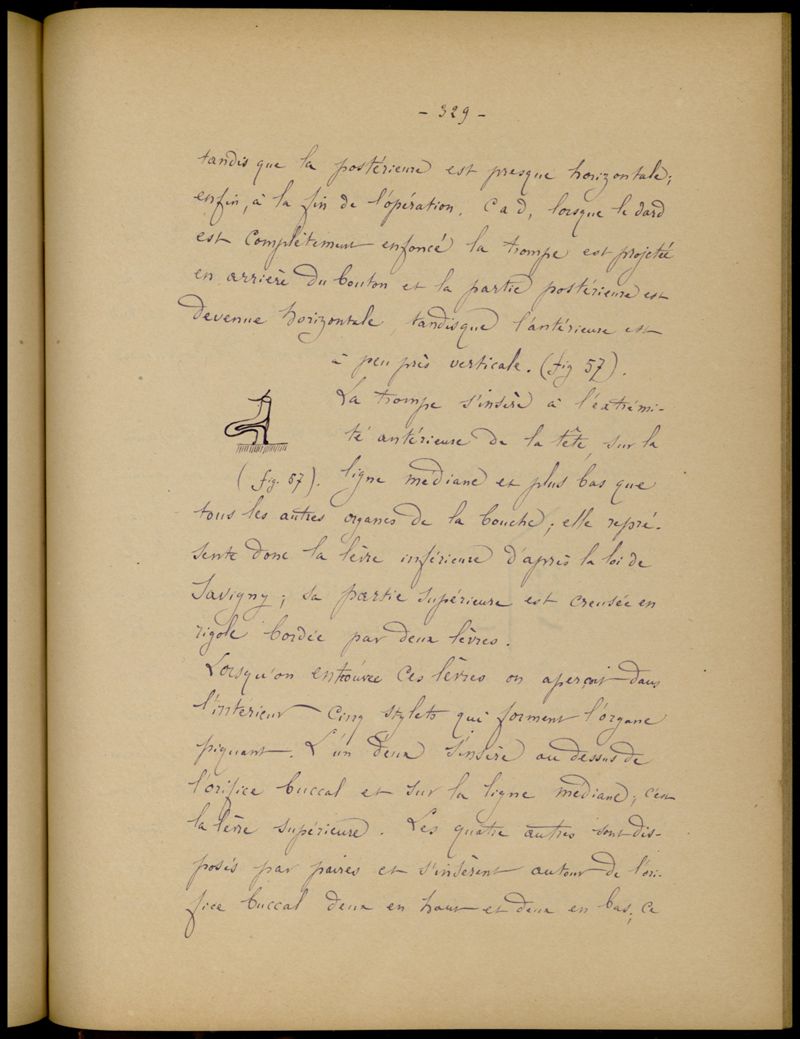 - 329 -
tandis que la postérieure est presque horizontale;
enfin, à la fin de l'opération. C a d, lorsque le dard
est complètement enfoncé la trompe est projetée
en arrière du bouton et la partie postérieure est
devenue horizontale, tandisque l'antérieure est
à peu près verticale. (fig 57).
La trompe s'insère à l'extrémi-
té antérieure de la tête, sur la
(fig. 57). ligne médiane et plus bas que
tous les autres organes de la bouche; elle repré-
sente donc la lèvre inférieure d'après la loi de
Savigny; sa partie supérieure est creusée en
rigole bordée par deux lèvres.
Lorsqu'on entrouvre ces lèvres on aperçoit dans
l'intérieur cinq stylets qui forment l'organe
piquant. L'un deux s'insère au dessus de
l'orifice buccal et sur la ligne médiane; c'est
la lèvre supérieure. Les quatre autres sont dis-
posés par paires et s'insèrent autour de l'ori-
fice buccal deux en haut et deux en bas; ce